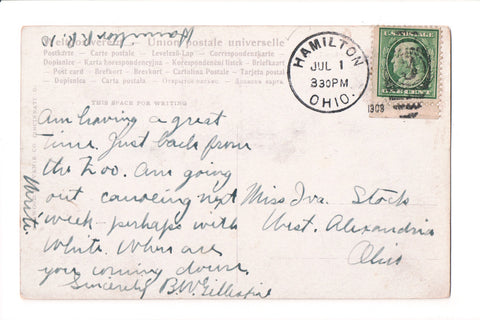 Weltpostverein. Union postale universelle
Postkarte - Carte postale - Levelező-Lap - Correspondenzkarte
Dopisnica - Karta korespondencyjna - Korespondenční lístek - Briefkaart
Post card - Brefkort - Brevkort - Cartolina Postale - Tarjeta postal
Dopisnice
THIS SPACE FOR WRITING
Hamilton R.R. 1
HAMILTON
JUL 1
330PM
OHIO.
1908
CENT
Am having a great
time. Just back from
the Zoo. Am going
out canoeing next
week - perhaps with
White. When are
you coming down.
Sincerely B.W. Gillespie
Write.
Miss Iva Stock
West. Alexandria
Ohio